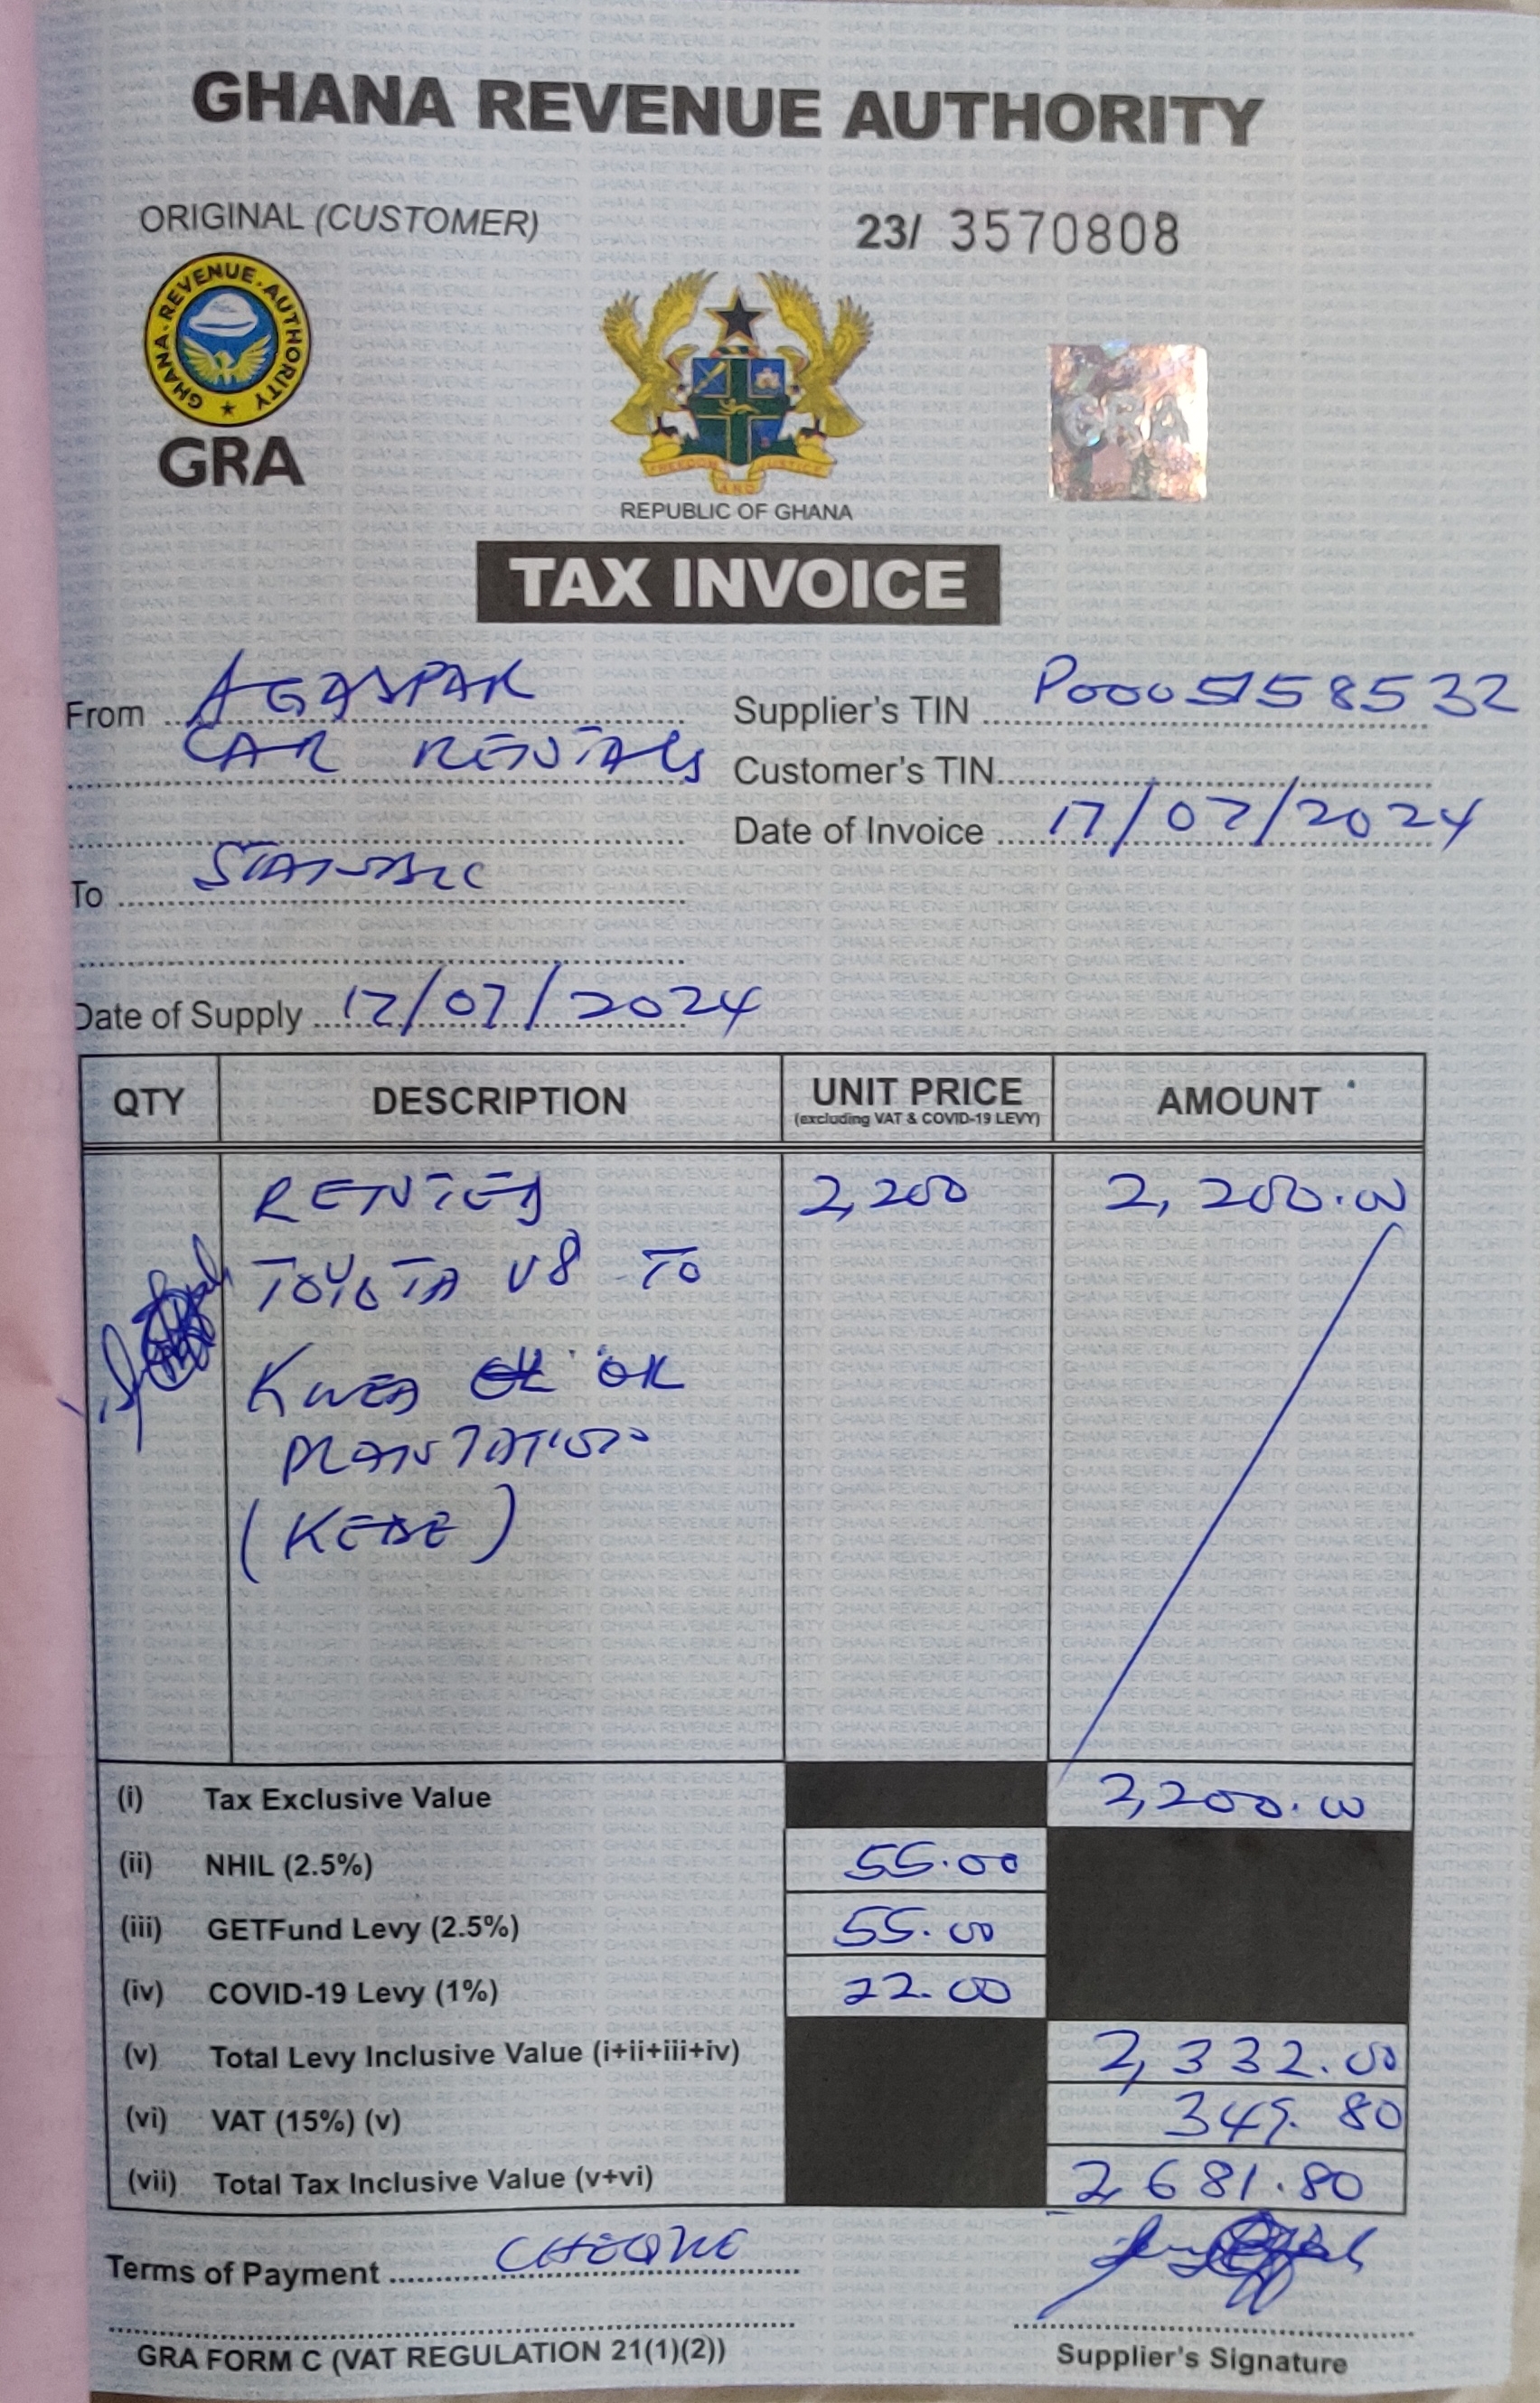 GHANA REVENUE AUTHORITY
ORIGINAL (CUSTOMER)
23/ 3570808
GHANA REVENUE AUTHORITY
GRA
FREEDOM AND JUSTICE
REPUBLIC OF GHANA
GRA
TAX INVOICE
From AGASPAR
CAR RENTALS
Supplier's TIN
Customer's TIN
Date of Invoice 17/07/2024
To STANBIC
Date of Supply 17/07/2024
QTY DESCRIPTION UNIT PRICE AMOUNT
(excluding VAT & COVID-19 LEVY)
RENTED 2,200 2,200.00
TOYOTA V8 TO
OIL
PLANTATION
(i) Tax Exclusive Value 2,200.00
(ii) NHIL (2.5%) 55.00
(iii) GETFund Levy (2.5%) 55.00
(iv) COVID-19 Levy (1%) 22.00
(v) Total Levy Inclusive Value (i+ii+iii+iv) 2,332.00
(vi) VAT (15%) (v) 349.80
(vii) Total Tax Inclusive Value (v+vi) 2,681.80
Terms of Payment CHEQUE
GRA FORM C (VAT REGULATION 21(1)(2))
Supplier's Signature